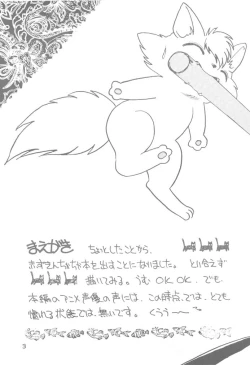 まえがき ちょいとしたことから、
赤ずきんチャチャ本を出すことになりました。 とりあえず
描いてみる。 うむ OK OK. でも
本編のアニメ声優の声には、この時点では、とても
聴ける状態では無いです。 くうう〜〜
3